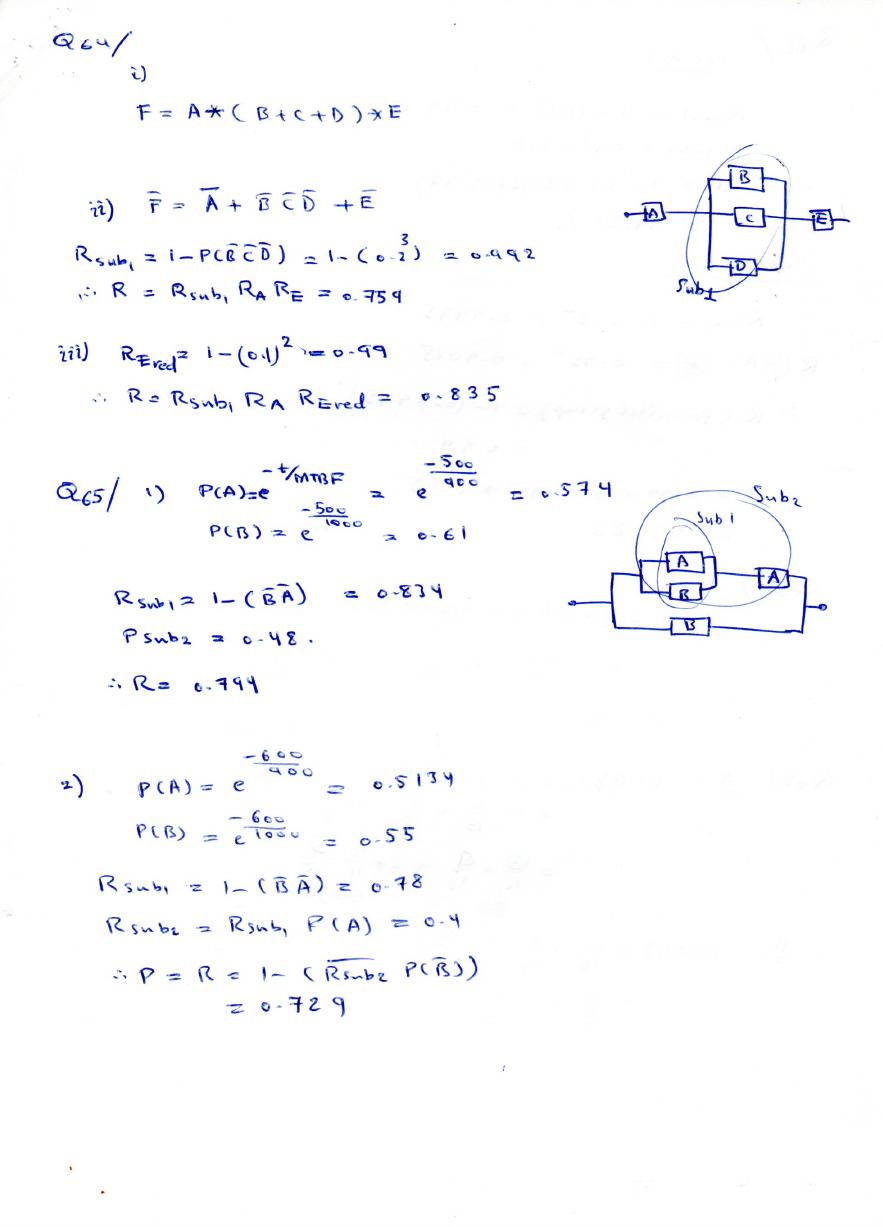 Q64/
i)
F = A * ( B + C + D ) * E
ii) F̄ = Ā + B̄ C̄ D̄ + Ē
R_sub₁ = 1 - P(B̄ C̄ D̄) = 1 - (0.2³) = 0.992
∴ R = R_sub₁ R_A R_E = 0.759
A
B
C
D
E
Sub1
iii) R_Ered = 1 - (0.1)² = 0.99
∴ R = R_sub₁ R_A R_Ered = 0.835
Q65/ 1) P(A) = e^(-t/MTBF) = e^(-500/900) = 0.574
P(B) = e^(-500/1000) = 0.61
R_sub₁ = 1 - (B̄ Ā) = 0.834
P_sub2 = 0.48.
∴ R = 0.794
Sub2
Sub1
A
B
A
B
2) P(A) = e^(-600/900) = 0.5134
P(B) = e^(-600/1000) = 0.55
R_sub₁ = 1 - (B̄ Ā) = 0.78
R_sub₂ = R_sub₁ P(A) = 0.4
∴ P = R = 1 - (R̄_sub2 P(B̄))
= 0.729